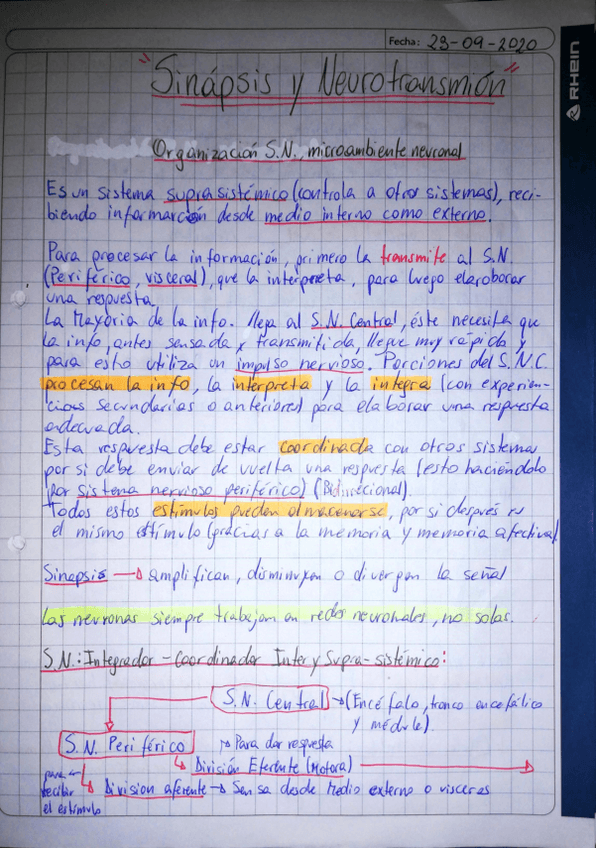 Fecha: 23-09-2020
RHEIN
"Sinápsis y Neurotransmión"
Organización S.N., microambiente neuronal
Es un sistema suprasistémico (controla a otros sistemas), reci-
biendo información desde medio interno como externo.
Para procesar la información, primero la transmite al S.N.
(Periférico, visceral), que la interpreta, para luego elaroborar
una respuesta.
La Mayoria de la info. llega al S.N. Central, éste necesita que
la info, antes sensada y transmitida, llegue muy rápida y
para esto utiliza un impulso nervioso. Porciones del S.N.C.
procesan la info, la interpreta y la integra (con experien-
cias secundarias o anteriores) para elaborar una respuesta
adecuada.
Esta respuesta debe estar coordinada con otros sistema
por si debe enviar de vuelta una respuesta (esto haciéndolo
por sistema nervioso periférico) (Bidireccional).
Todos estos estímulos pueden almacenarse, por si después es
el mismo estímulo (gracias a la memoria y memoria afectiva)
Sinapsis → amplifican, disminuyen o divergen la señal
Las neuronas siempre trabajan en redes neuronales, no solas.
S.N.: Integrador - Coordinador Inter y Supra-sistémico:
S.N. Central → (Encéfalo, tronco encefálico
y médula).
S.N. Periférico → Para dar respuesta
División Eferente (Motora)
para recibir el estímulo
Division aferente → Sensa desde Medio externo o visceras